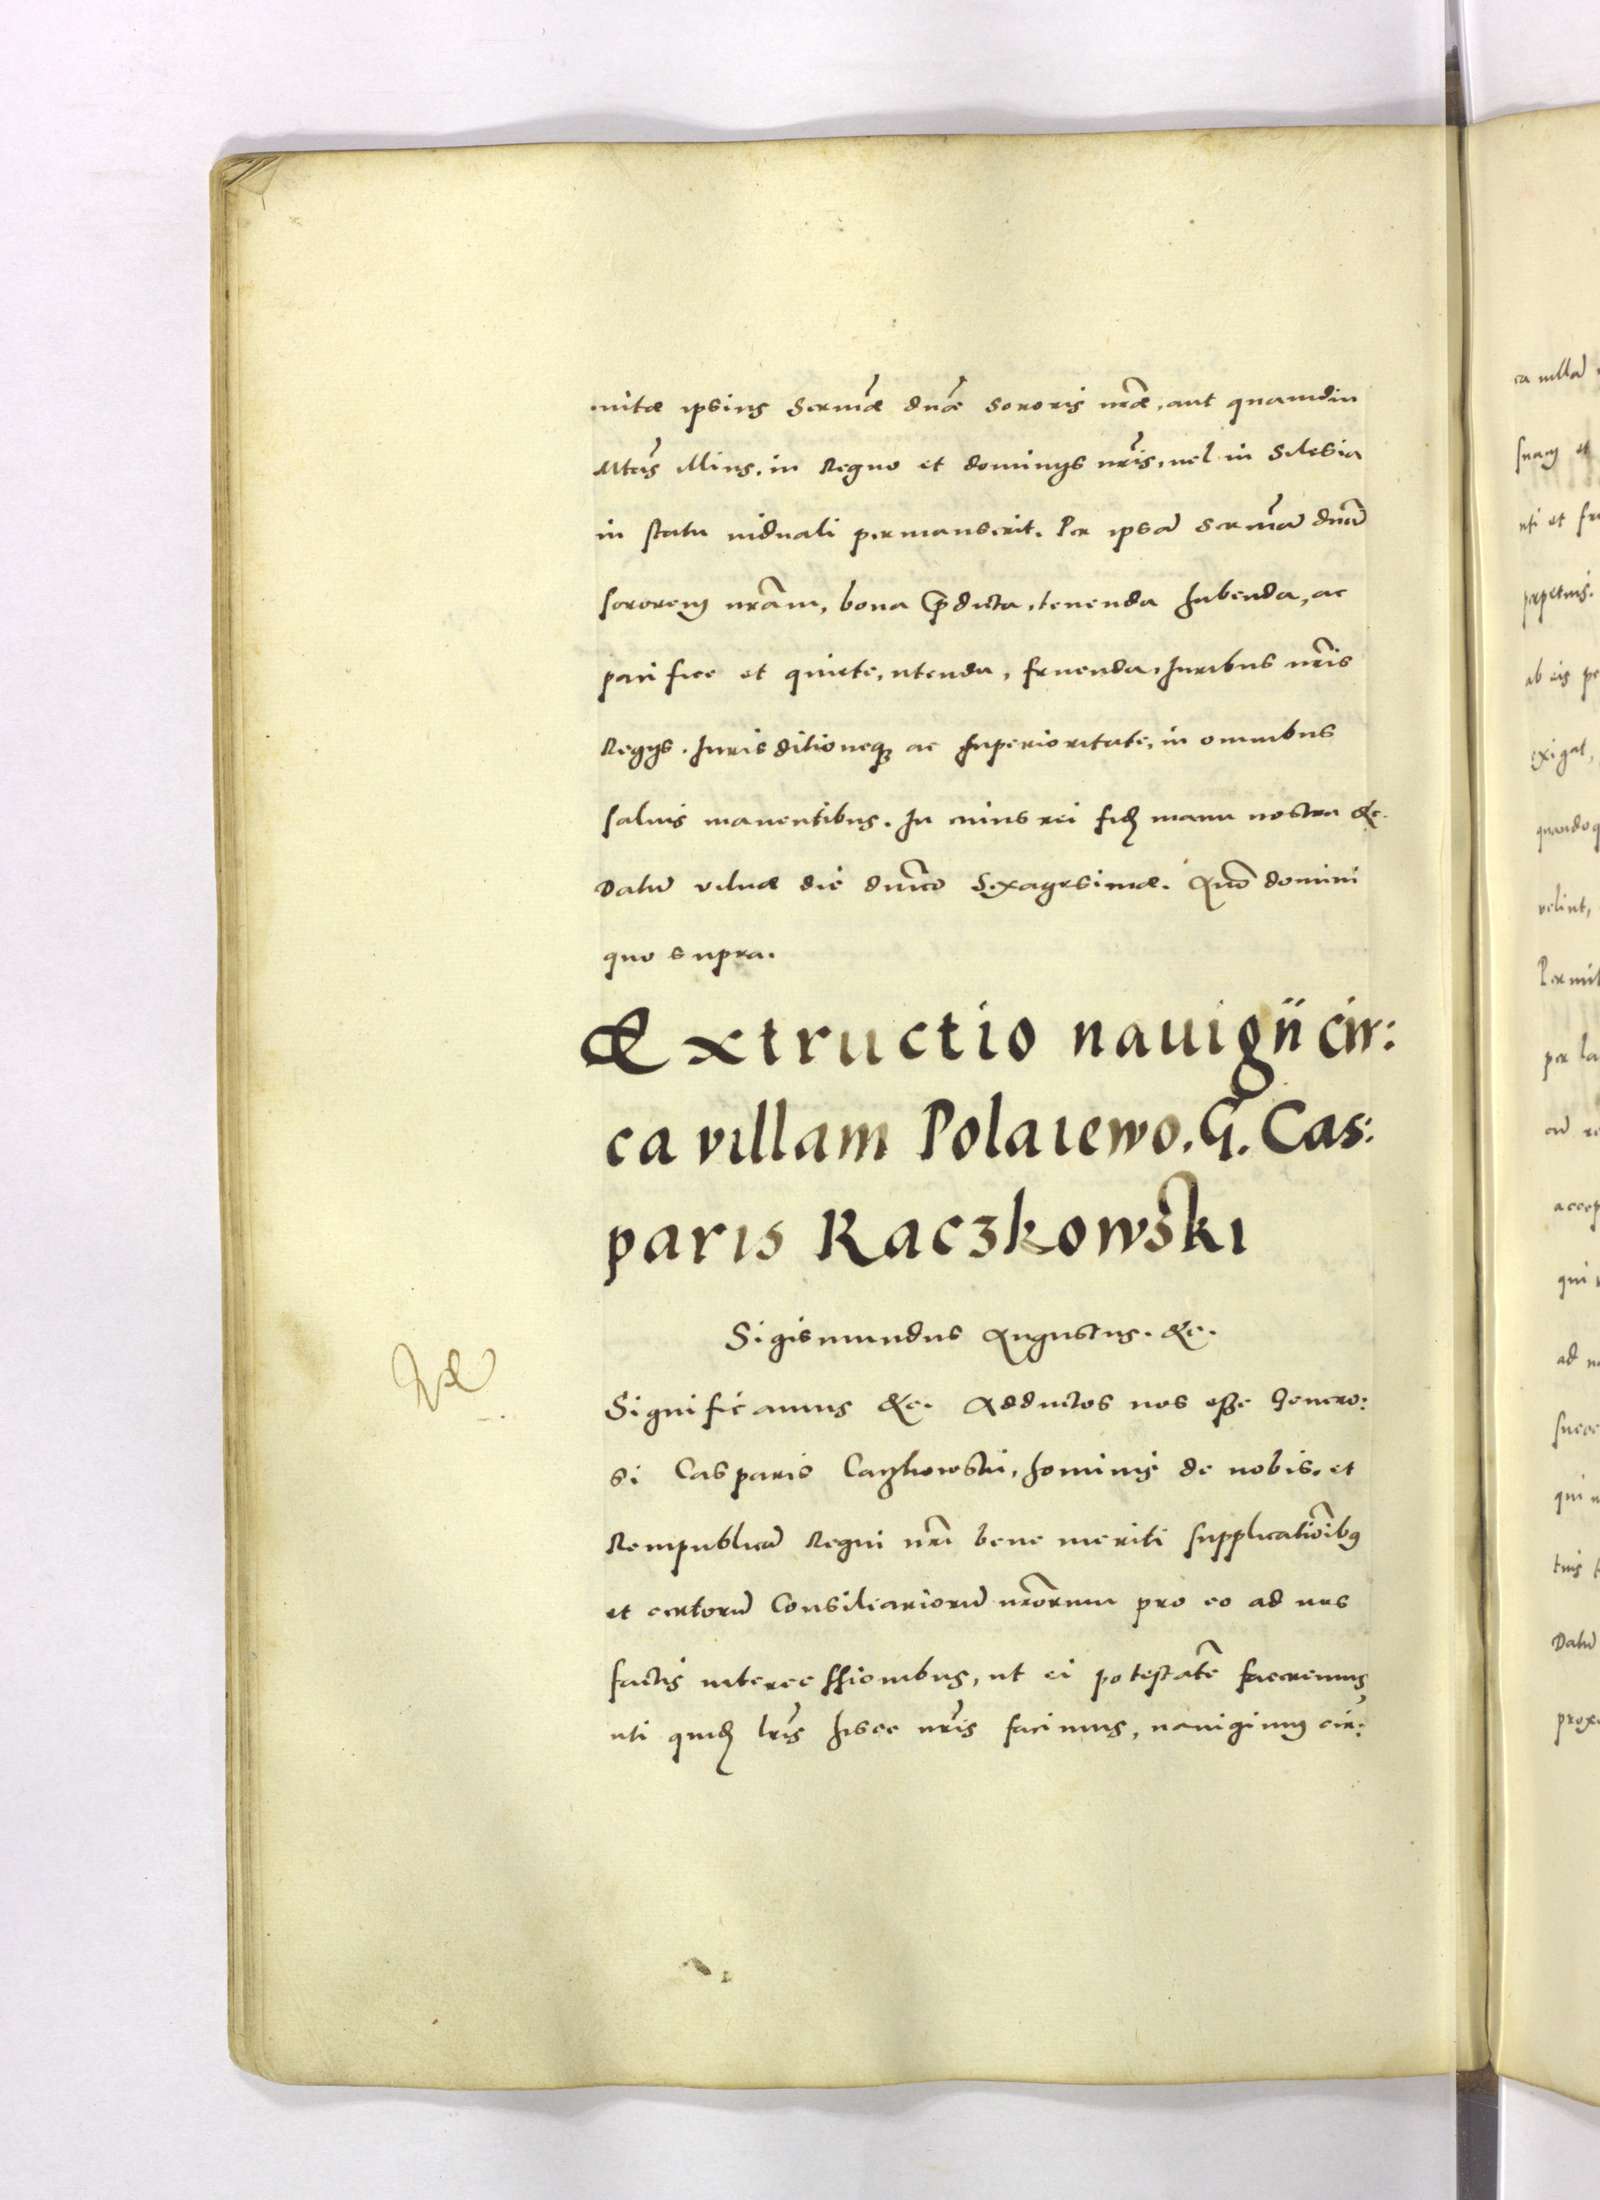 uitæ ipsius Sermæ dnæ sororis nræ, aut quamdiu
Mtas illius, in Regno et dominijs nris, uel in Silesia
in statu uiduali permanserit. Per ipsã Sermã dnã
sororem nrãm, bona p̃dicta, tenenda habenda, ac
pacifice et quiete, utenda, fruenda, Iuribus nris
Regijs. Iurisditioneq; ac superioritate, in omnibus
saluis manentibus. In cuius rei fidẽ manu nostra &c.
Datũ Vilnæ die dnico Sexagesimæ. Anno domini
quo supra.
Extructio nauigii cir:
ca villam Polaiewo. G. Cas:
paris Raczkowski
Sigismundus Augustus. &c.
Significamus &c. Adductos nos esse Genero:
si Casparis Caczkowski, hominis de nobis, et
Rempublicã Regni nri bene meriti supplicationibus
et certorũ Consiliariorũ nrorum pro eo ad nos
factis intercessionibus, ut ei potestatẽ faceremus
uti quidẽ lris hisce nris facimus, nauigium cir:
ca nullã
suam et
uti et fru
perpetuis.
ab eis pe
exigat,
quandoq
velint,
Permit
per la
cũ re
accep
qui
ad n
succe
qui n
tuis
Datũ
prox